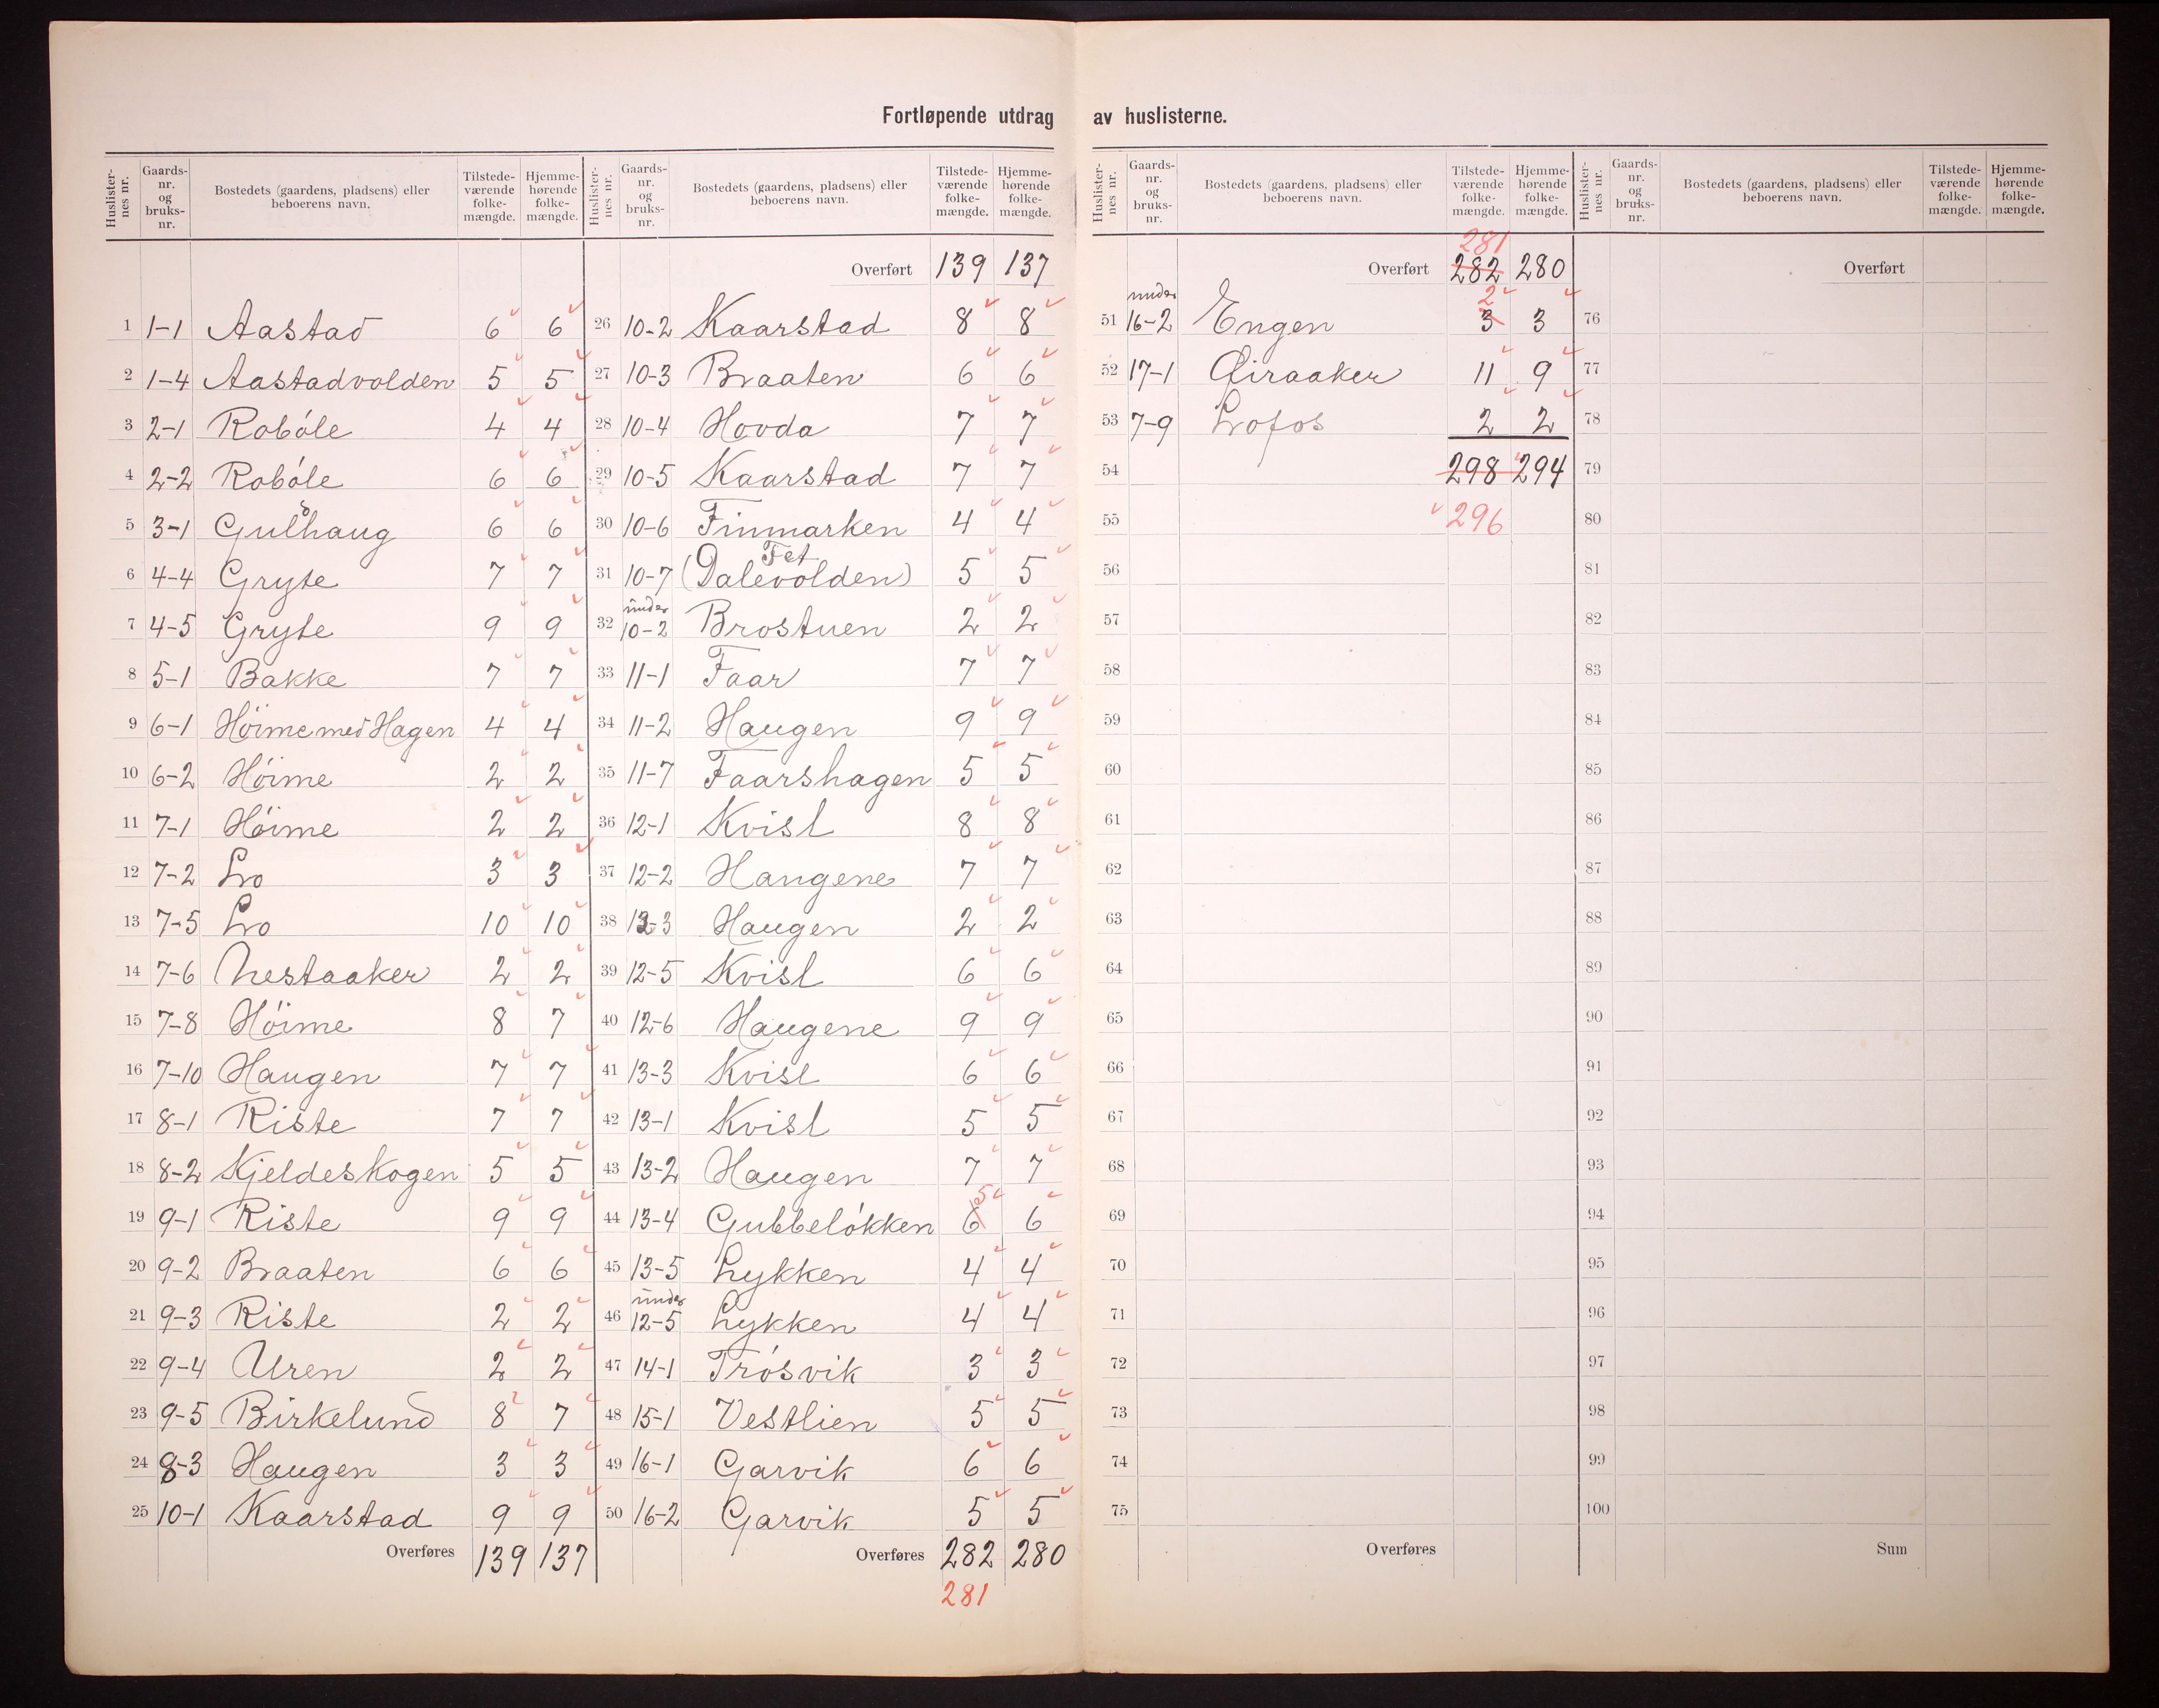 Fortløpende utdrag av huslisterne.
Huslisternes nr. | Gaards-nr. og bruks-nr. | Bostedets (gaardens, pladsens) eller beboerens navn. | Tilstede-værende folke-mængde. | Hjemme-hørende folke-mængde.
1 1-1 Aastad 6 6
2 1-4 Aastadvolden 5 5
3 2-1 Robóle 4 4
4 2-2 Robóle 6 6
5 3-1 Gulhaug 6 6
6 4-4 Gryte 7 7
7 4-5 Gryte 9 9
8 5-1 Bakke 7 7
9 6-1 Höime med Hagen 4 4
10 6-2 Hóime 2 2
11 7-1 Hóime 2 2
12 7-2 Lro 3 3
13 7-5 Lro 10 10
14 7-6 Nestaaker 2 2
15 7-8 Hóime 8 7
16 7-10 Haugen 7 7
17 8-1 Riste 7 7
18 8-2 Kjeldeskogen 5 5
19 9-1 Riste 9 9
20 9-2 Braaten 6 6
21 9-3 Riste 2 2
22 9-4 Uren 2 2
23 9-5 Birkelund 8 7
24 8-3 Haugen 3 3
25 10-1 Kaarstad 9 9
Overføres 139 137
Huslisternes nr. | Gaards-nr. og bruks-nr. | Bostedets (gaardens, pladsens) eller beboerens navn. | Tilstede-værende folke-mængde. | Hjemme-hørende folke-mængde.
Overført 139 137
26 10-2 Kaarstad 8 8
27 10-3 Braaten 6 6
28 10-4 Hovda 7 7
29 10-5 Kaarstad 7 7
30 10-6 Finmarken 4 4
Fet
31 10-7 (Dalevolden) 5 5
under
32 10-2 Brostuen 2 2
33 11-1 Faar 7 7
34 11-2 Haugen 9 9
35 11-7 Faarshagen 5 5
36 12-1 Kvisl 8 8
37 12-2 Haugene 7 7
38 12-3 Haugen 2 2
39 12-5 Kvisl 6 6
40 12-6 Haugene 9 9
41 13-3 Kvisl 6 6
42 13-1 Kvisl 5 5
43 13-2 Haugen 7 7
5
44 13-4 Gubbelókken 6 6
45 13-5 Lykken 4 4
under
46 12-5 Lykken 4 4
47 14-1 Trósvik 3 3
48 15-1 Vestlien 5 5
49 16-1 Garvik 6 6
50 16-2 Garvik 5 5
Overføres 282 280
281
Huslisternes nr. | Gaards-nr. og bruks-nr. | Bostedets (gaardens, pladsens) eller beboerens navn. | Tilstede-værende folke-mængde. | Hjemme-hørende folke-mængde.
281
Overført 282 280
under 2
51 16-2 Engen 3 3
52 17-1 Øiraaker 11 9
53 7-9 Lrofos 2 2
54 298 294
55 296
56
57
58
59
60
61
62
63
64
65
66
67
68
69
70
71
72
73
74
75
Overføres
Huslisternes nr. | Gaards-nr. og bruks-nr. | Bostedets (gaardens, pladsens) eller beboerens navn. | Tilstede-værende folke-mængde. | Hjemme-hørende folke-mængde.
Overført
76
77
78
79
80
81
82
83
84
85
86
87
88
89
90
91
92
93
94
95
96
97
98
99
100
Sum